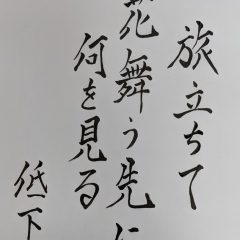 旅立ちて
花舞う先に
何を見る
下